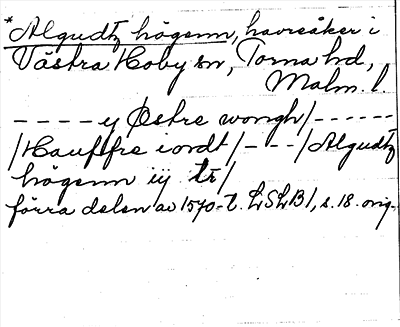 *Algudtz högenn, havreåker i
Västra Hoby sn, Torna hd,
Malm. l.
- - - - y Østre wongh/- - - - - -
/Hauffre iordt/- - -/Algudtz
högenn iij tr/
förra delen av 1570-t. LSLB1, s. 18. orig.